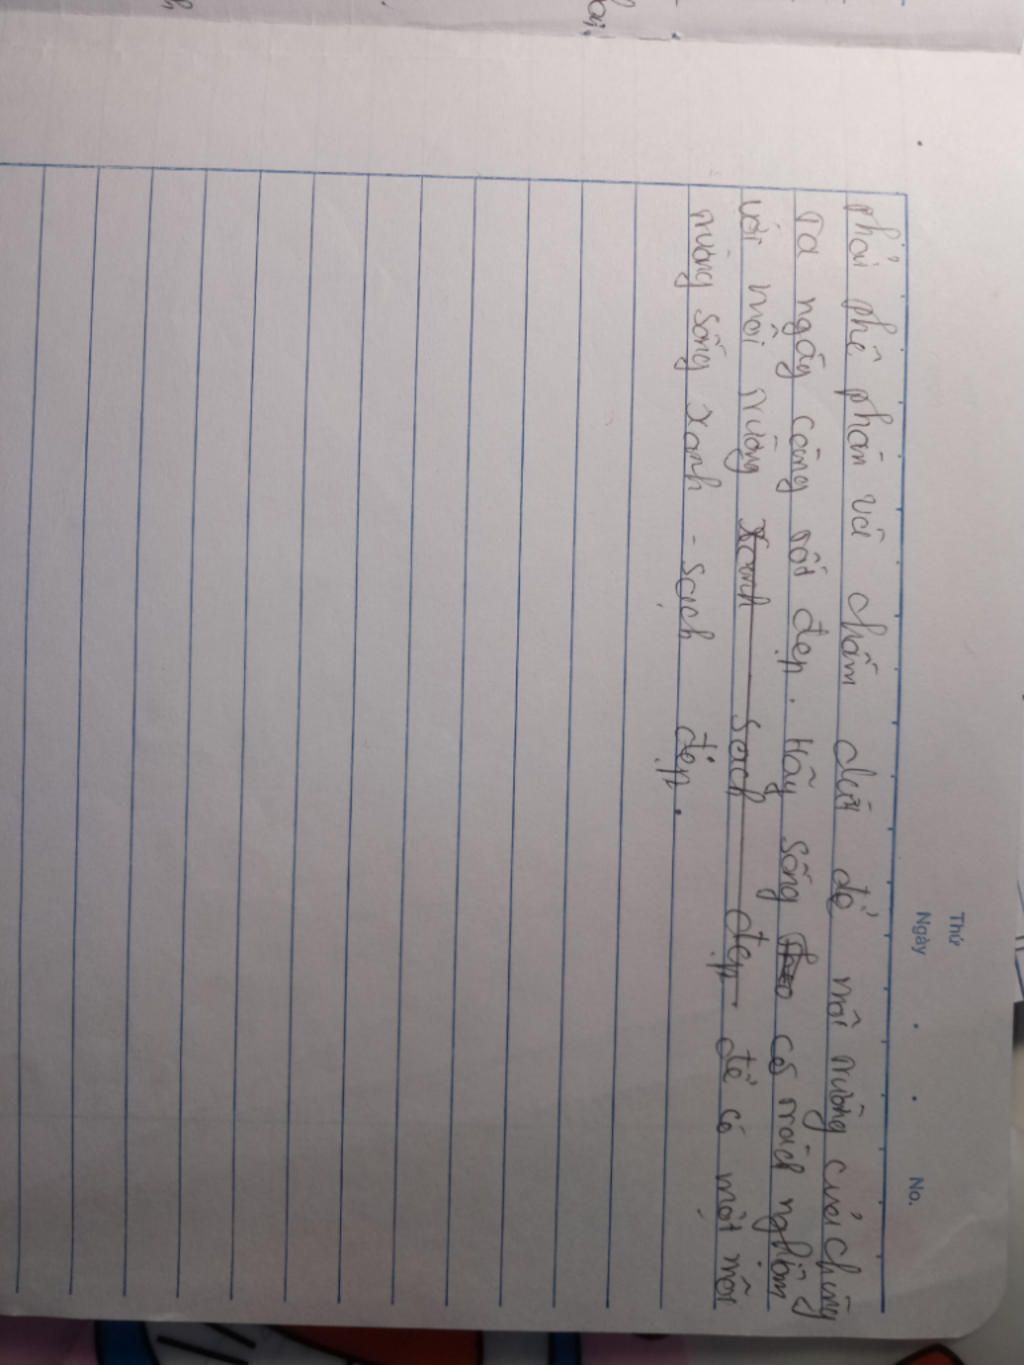 Thứ
Ngày . . No.
phải phê phán và chấm dứt để môi trường của chúng
ta ngày càng tốt đẹp. Hãy sống theo có trách nghiệm
với môi trường xanh sạch đẹp để có một môi
trường sống xanh - sạch đẹp.